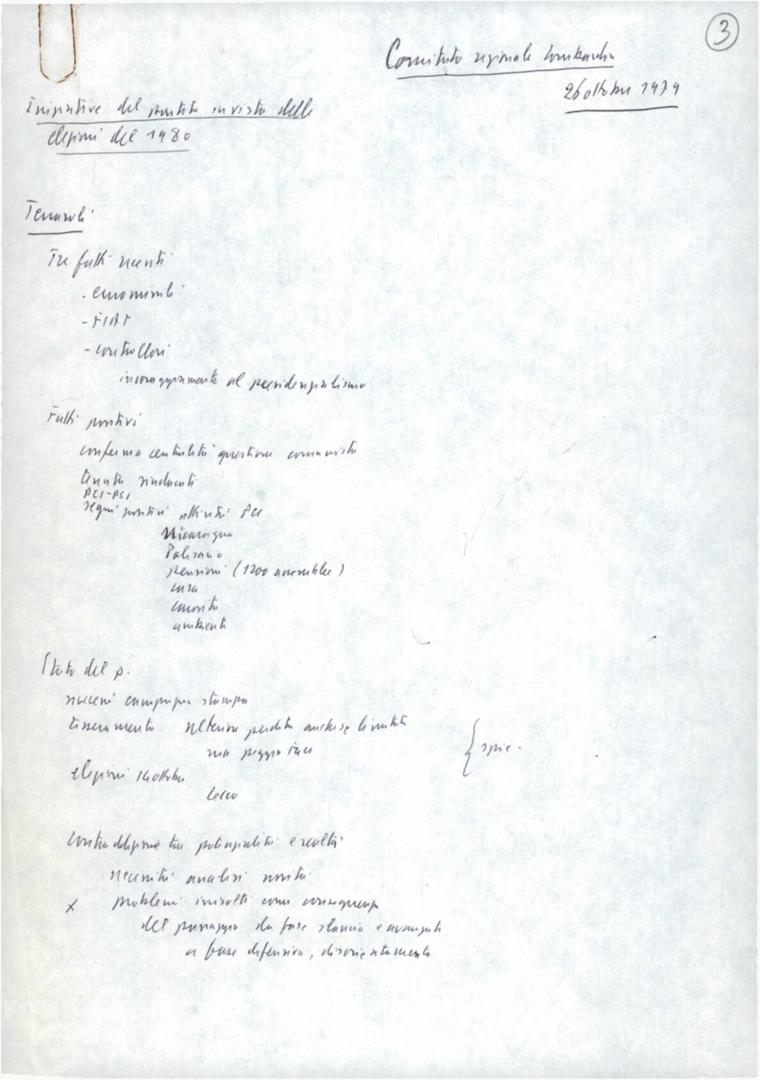 3
Comitato regionale lombardo
26 ottobre 1979
Iniziative del partito in vista delle
elezioni del 1980
Terraroli
Tre fatti recenti
- euromissili
- FIAT
- controllori
incoraggiamento al presidenzialismo
Fatti positivi
conferma centralità questione comunista
tenuta sindacati
PCI-PSI
segni positivi attività PCI
Nicaragua
Polesano
pensioni (1200 assemblee)
casa
ambienti
Stato del p.
successi campagna stampa
tesseramento ulteriore perdita anche se limitata
ma peggio
elezioni ottobre
Lecco
{ spie.
contraddizione tra potenzialità e realtà
necessità analisi
x problemi irrisolti come conseguenza
del passaggio da fase slancio e avanzata
a fase difensiva, disorientamento